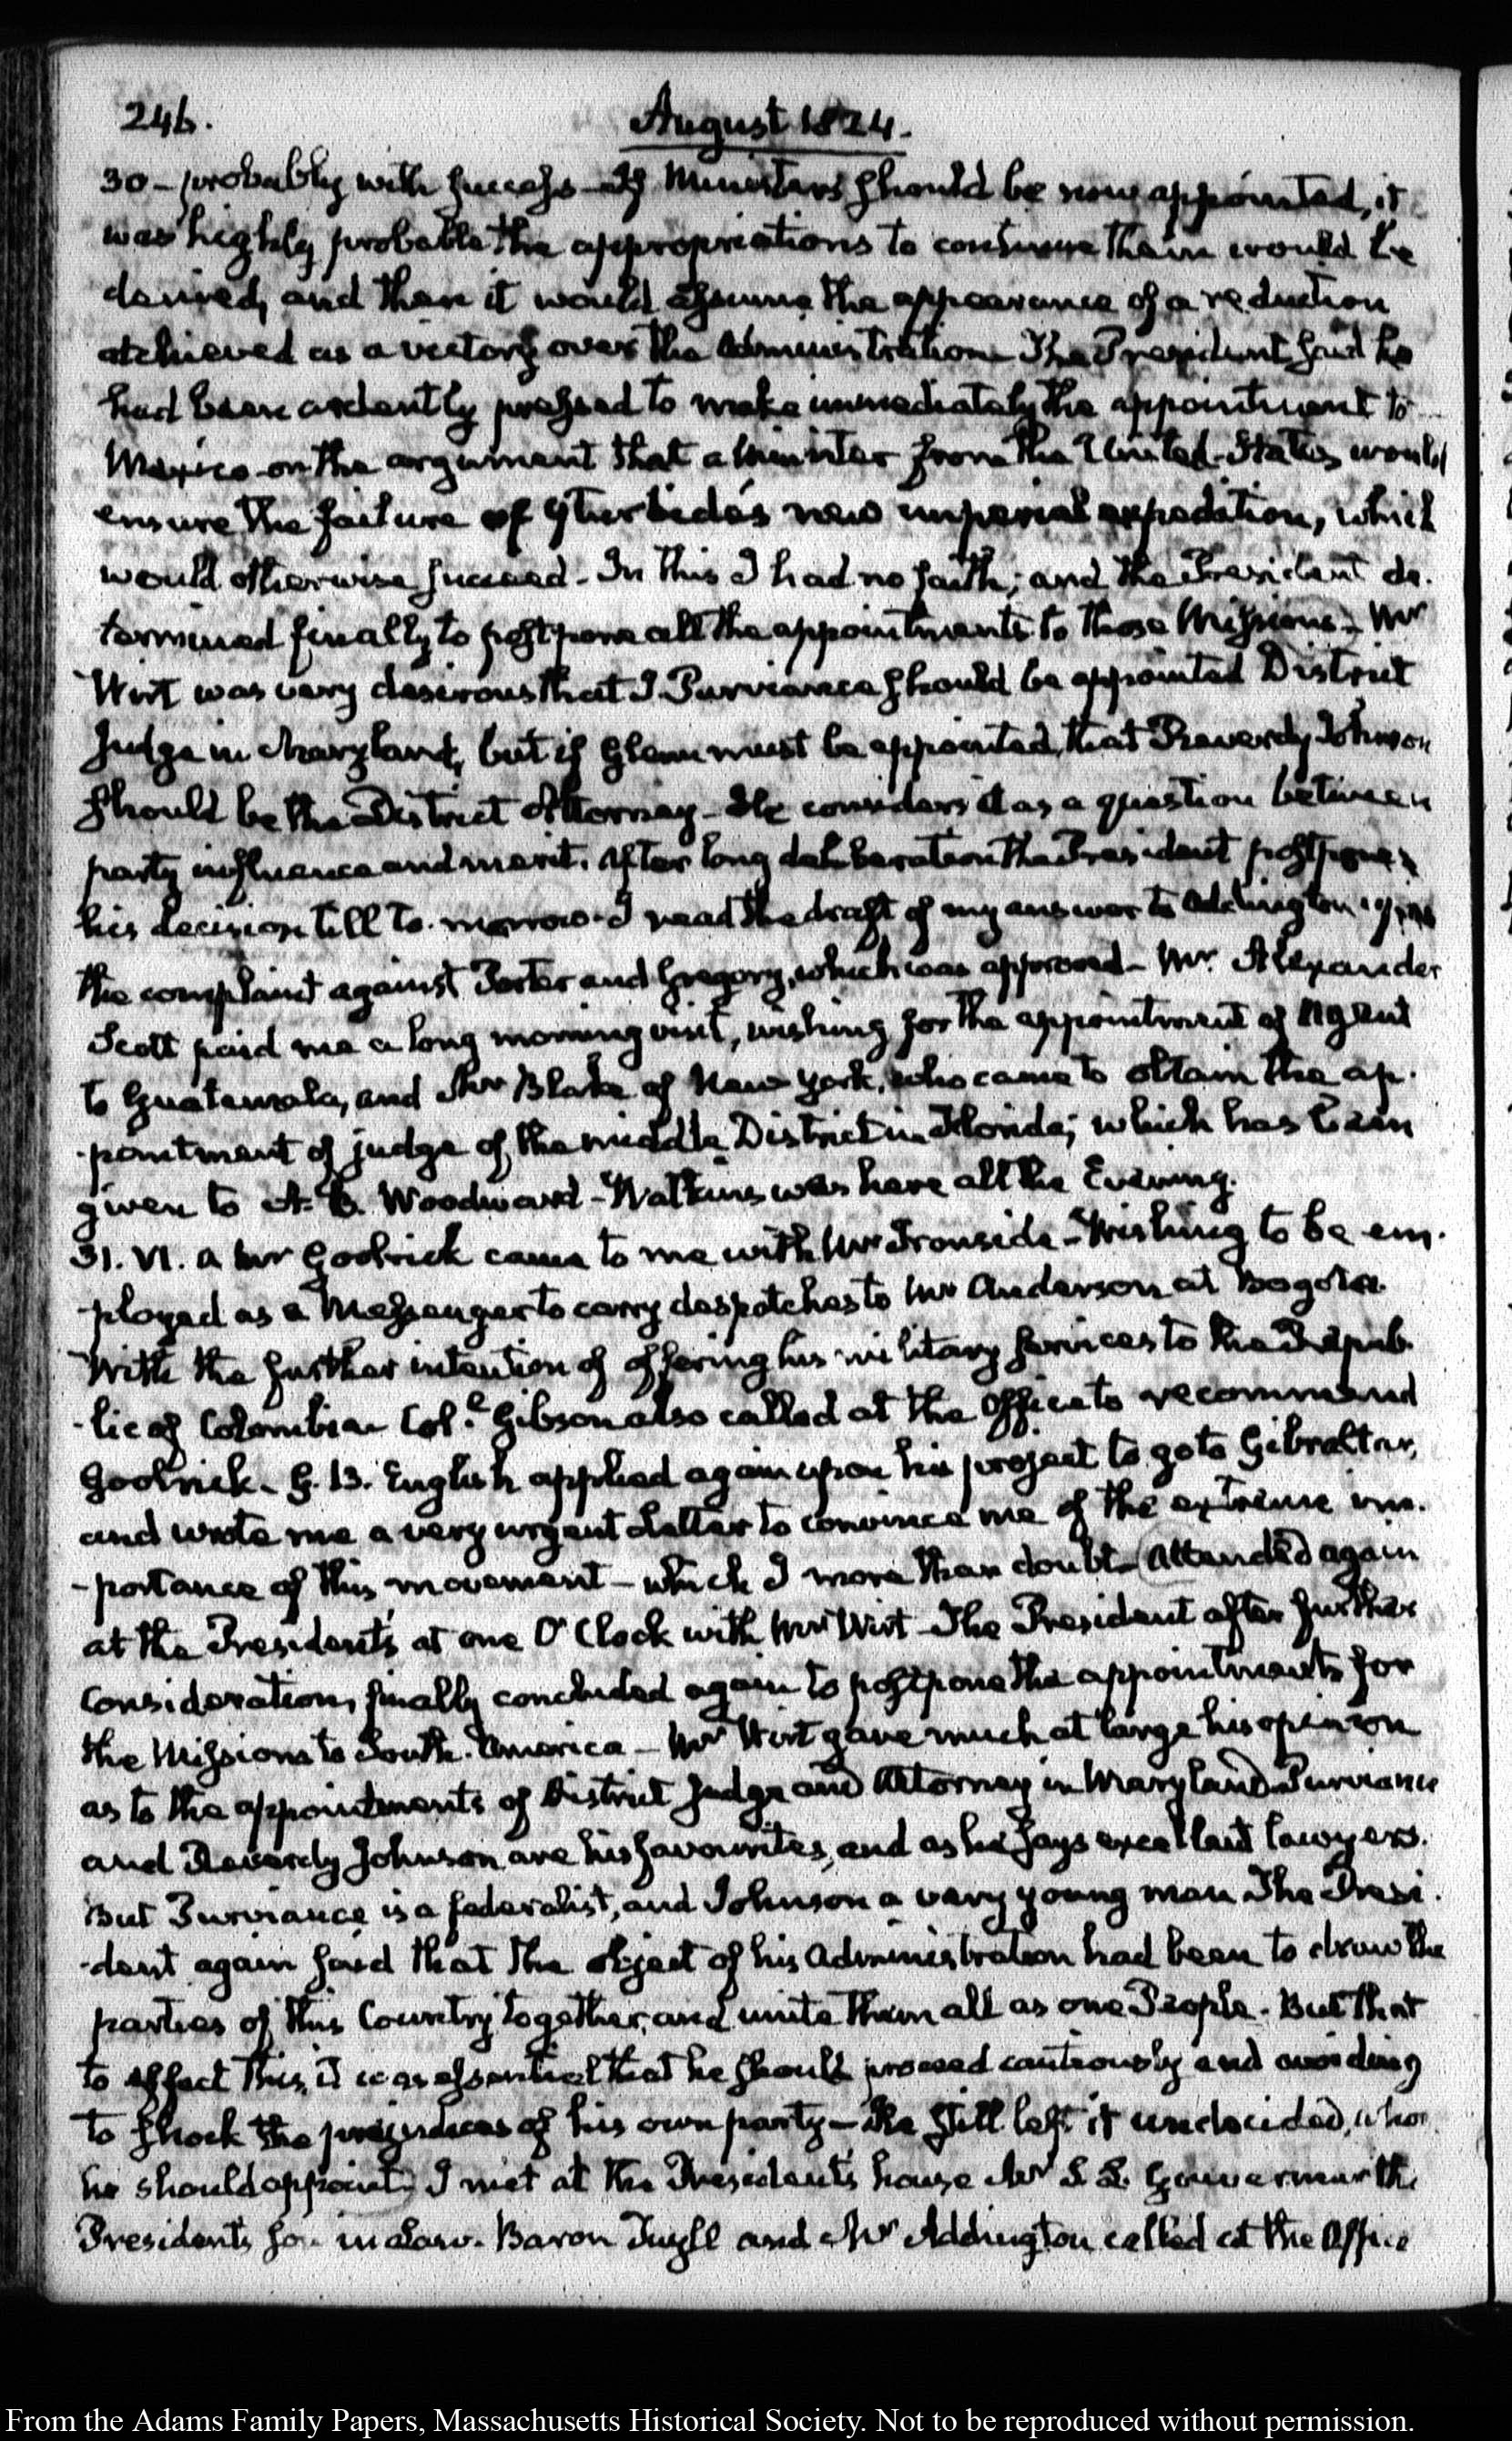 246.
August 1824.
30 - probably with success - If Ministers should be now appointed, it
was highly probable the appropriations to continue them would be
denied, and then it would assume the appearance of a reduction
atchieved as a victory over the Administration - The President said he
had been ardently pressed to make immediately the appointment to
Mexico - on the argument that a Minister from the United-States would
ensure the failure of Yturbide's new imperial expedition, which
would otherwise succeed - In this I had no faith; and the President de-
termined finally to postpone all the appointments to those Missions - Mr
Wirt was very desirous that J. Purviance should be appointed District
Judge in Maryland, but if Glenn must be appointed, that Reverdy Johnson
should be the District Attorney - He considers it as a question between
party influence and merit. After long deliberation the President postpones
his decision till to-morrow - I read the draft of my answer to Addington upon
the complaint against Porter and Gregory, which was approved - Mr. Alexander
Scott paid me a long morning visit, wishing for the appointment of Agent
to Guatemala, and Mr Blake of New York, who came to obtain the ap-
-pointment of judge of the middle District in Florida; which has been
given to A. B. Woodward - Watkins was here all the Evening.
31. VI. A Mr Goolrick came to me with Mr Ironside - Wishing to be em-
-ployed as a Messenger to carry despatches to Mr Anderson at Bogota.
With the further intention of offering his military services to the Repub-
-lic of Colombia - Coll. Gibson also called at the Office to recommend
Goolrick - G. B. English applied again upon his project to go to Gibraltar,
and wrote me a very urgent Letter to convince me of the extreme im-
-portance of this movement - which I more than doubt - Attended again
at the President's at one O'Clock with Mr Wirt - The President after further
Consideration, finally concluded again to postpone the appointments for
the Missions to South-America - Mr Wirt gave much at large his opinion
as to the appointments of District Judge and Attorney in Maryland - Purviance
and Reverdy Johnson are his favourites, and as he says excellent lawyers.
But Purviance is a federalist, and Johnson a very young man - The Presi-
-dent again said that the object of his Administration had been to draw the
parties of this Country together, and unite them all as one People - But that
to effect this, it was essential that he should proceed cautiously and avoiding
to shock the prejudices of his own party - He still left it undecided, who
he should appoint - I met at the President's house Mr S. L. Gouverneur the
President's son in Law - Baron Tuyll and Mr Addington called at the Office
From the Adams Family Papers, Massachusetts Historical Society. Not to be reproduced without permission.